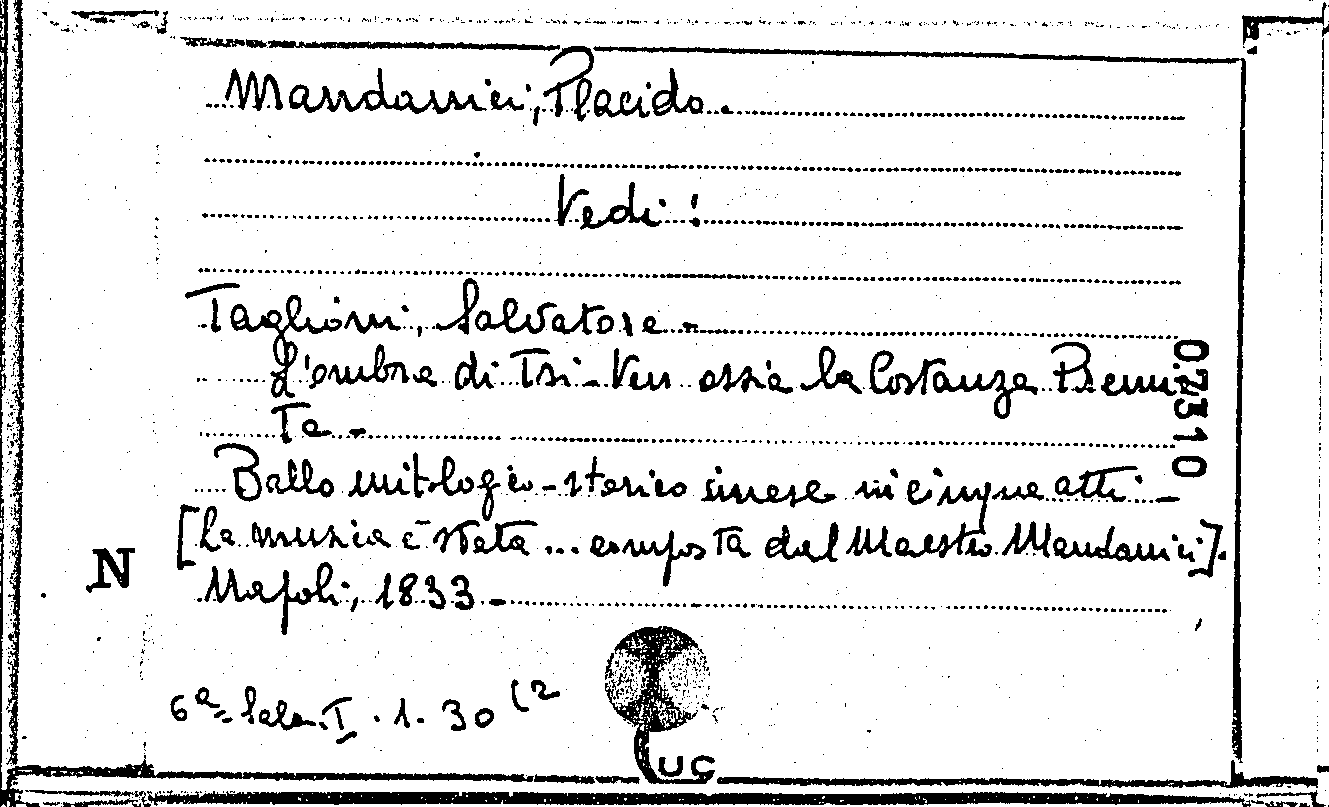 Mandanici, Placido.
Vedi:
Taglioni, Salvatore -
L'ombra di Tsi-Ven ossia la Costanza Premia
Ta -
Ballo mitologico-storico cinese in cinque atti -
[La musica è stata ... composta dal Maestro Mandanici].
Napoli, 1833 -
6a= Sala. I. 1. 30 (2
N
07310
UC